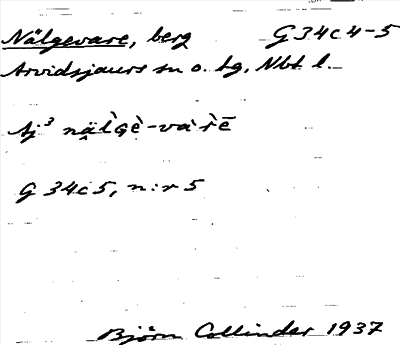 Nälgevare, berg G 34c 4-5
Arvidsjaurs sn o. tg, Nbt l.
Aj³ nä̭l̀Gè-và r̀ē
G 34c 5, n:r 5
Björn Collinder 1937